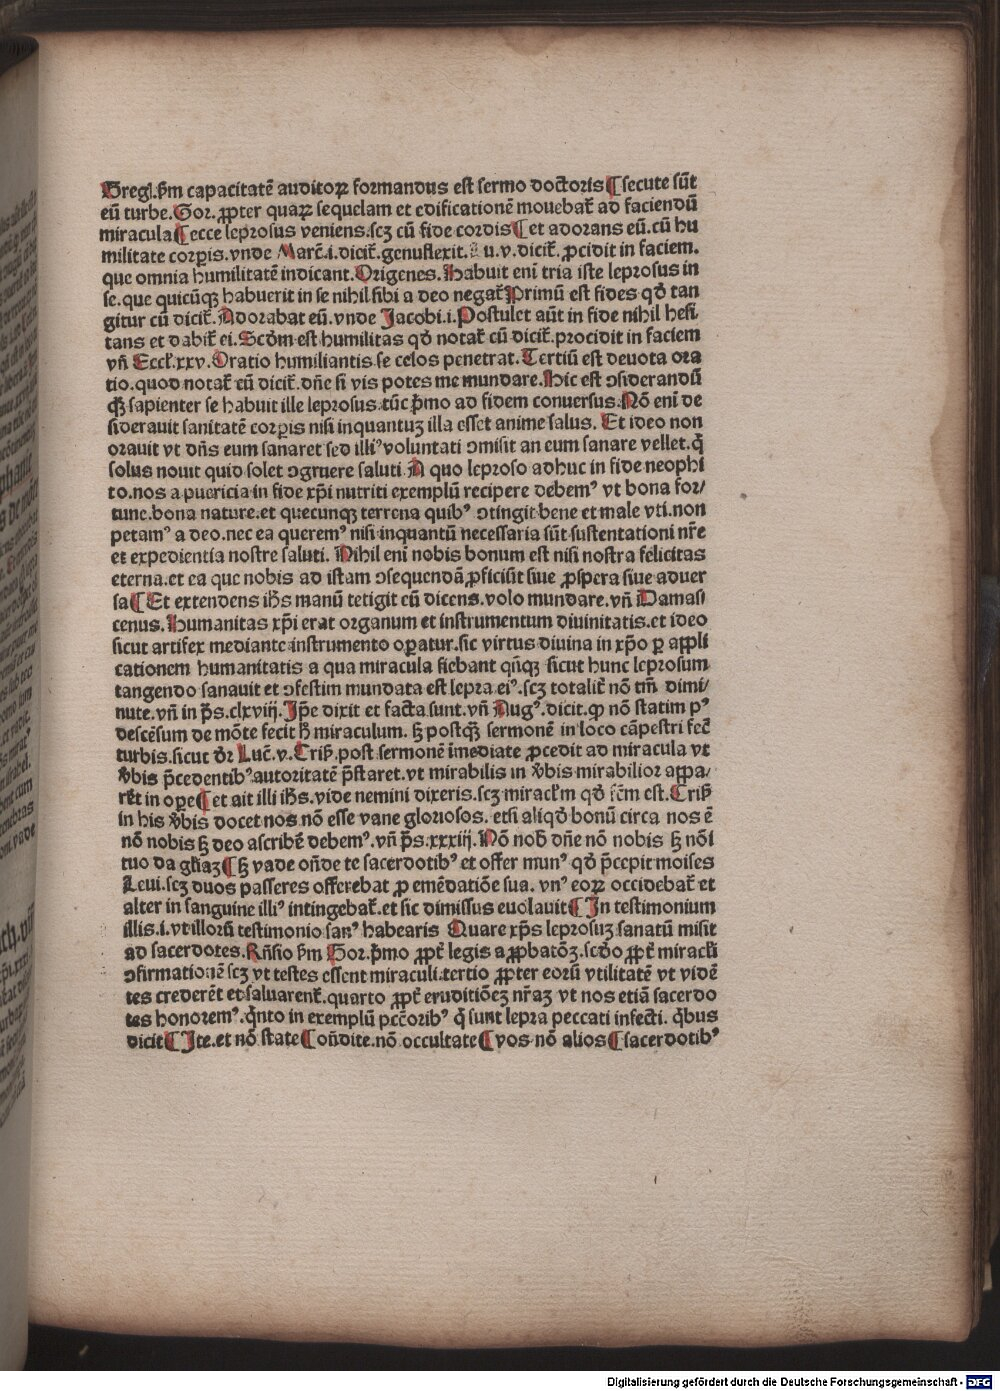 Greg⁊.ẜm capacitatē auditoꝝ formandus est sermo doctoris ¶ secute sūt
eū turbe. Gor. ꝓpter quaꝝ sequelam et edificationē mouebaṫ ad faciendū
miracula ¶ ecce leprosus veniens.scꝫ cū fide cordis ¶ et adorans eū.cū hu
militate corꝑis.vnde Marc̄.i.diciṫ.genuflexit. u.v.diciṫ. ꝓcidit in faciem.
que omnia humilitatē indicant. Origenes. Habuit eni tria iste leprosus in
se.que quicūqꝫ habuerit in se nihil sibi a deo negaṫ Primū est fides qđ tan
gitur cū diciṫ. Adorabat eū. vnde Jacobi.i. Postulet aūt in fide nihil hesi
tans et dabiṫ ei. Scđm est humilitas qđ notaṫ cū diciṫ.procidit in faciem
vn̄ Eccƚ.xxv. Oratio humiliantis se celos penetrat. Tertiū est deuota ora
tio.quod notaṫ cū diciṫ.dn̄e si vis potes me mundare. Hic est ꝯsiderandū
qꝫ̄ sapienter se habuit ille leprosus tūc p̄mo ad fidem conuersus. Nō eni de
siderauit sanitatē corꝑis nisi inquantuꝫ illa esset anime salus. Et ideo non
orauit vt dn̄s eum sanaret sed illiꝰ voluntati ꝯmisit an eum sanare vellet.q̄
solus nouit quid solet ꝯgruere saluti. A quo leproso adhuc in fide neophi
to.nos a puericia in fide xp̄i nutriti exemplū recipere debemꝰ vt bona for/
tune.bona nature.et quecunqꝫ terrena quibꝰ ꝯtingit bene et male vti.non
petamꝰ a deo.nec ea queremꝰ nisi inquantū necessaria sūt sustentationi nr̄e
et expedientia nostre saluti. Nihil eni nobis bonum est nisi nostra felicitas
eterna.et ea que nobis ad istam ꝯsequendā ꝓficisūt siue ꝓspera siue aduer
sa ¶ Et extendens ih̄s manū tetigit eū dicens.volo mundare.vn̄ Damasi
cenus. Humanitas xp̄i erat organum et instrumentum diuinitatis.et ideo
sicut artifex mediante instrumento oꝑatur.sic virtus diuina in xp̄o ꝑ appli
cationem humanitatis a qua miracula fiebant qn̄qꝫ sicut hunc leprosum
tangendo sanauit et ꝯfestim mundata est lepra eiꝰ.scꝫ totaliṫ nō tm̄ dimi/
nute.vn̄ in p̄s.clxviij. Ip̄e dixit et facta sunt.vn̄ Augꝰ.dicit.ꝙ nō statim pꝰ
descēsum de mōte fecit h̄ miraculum. ꜩ postqꝫ̄ sermonē in loco cāpestri fec̄
turbis.sicut dr̄ Luc̄.v. Criẜ.post sermonē īmediate ꝓcedit ad miracula vt
v̄bis p̄cedentibꝰ autoritatē p̄staret.vt mirabilis in v̄bis mirabilior appa/
rēt in oꝑe ¶ et ait illi ih̄s.vide nemini dixeris.scꝫ miracƚm qđ fc̄m est. Criẜ
in his v̄bis docet nos nō esse vane gloriosos. etsi aliqđ bonū circa nos ē
nō nobis ꜩ deo ascribē debemꝰ.vn̄ p̄s.xxxiij. Nō noƀ dn̄e nō nobis ꜩ nōi
tuo da gƚiaꝫ ¶ ꜩ vade on̄de te sacerdotibꝰ et offer munꝰ qđ p̄cepit moises
Leui.scꝫ duos passeres offerebat ꝓ emēdatiōe sua. vnꝰ eoꝝ occidebaṫ et
alter in sanguine illiꝰ intingebaṫ.et sic dimissus euolauit ¶ In testimonium
illis.i.vt illorū testimonio sanꝰ habearis Quare xp̄s leprosuꝫ sanatū misit
ad sacerdotes. Rn̄sio ẜm Gor. p̄mo ꝓpṫ legis aꝓbatōꝫ.scđo ꝓpṫ miracƚi
ꝯfirmationē scꝫ vt testes essent miraculi.tertio ꝓpter eorū vtilitatē vt vidē
tes crederēt et saluarenṫ.quarto ꝓpṫ eruditiōeꝫ nr̄aꝫ vt nos etiā sacerdo
tes honoremꝰ.q̄nto in exemplū pcc̄oribꝰ q̄ sunt lepra peccati infecti. q̄bus
dicit ¶ Ite.et nō state ¶ on̄dite.nō occultate ¶ vos nō alios ¶ sacerdotibꝰ
Digitalisierung gefördert durch die Deutsche Forschungsgemeinschaft - DFG